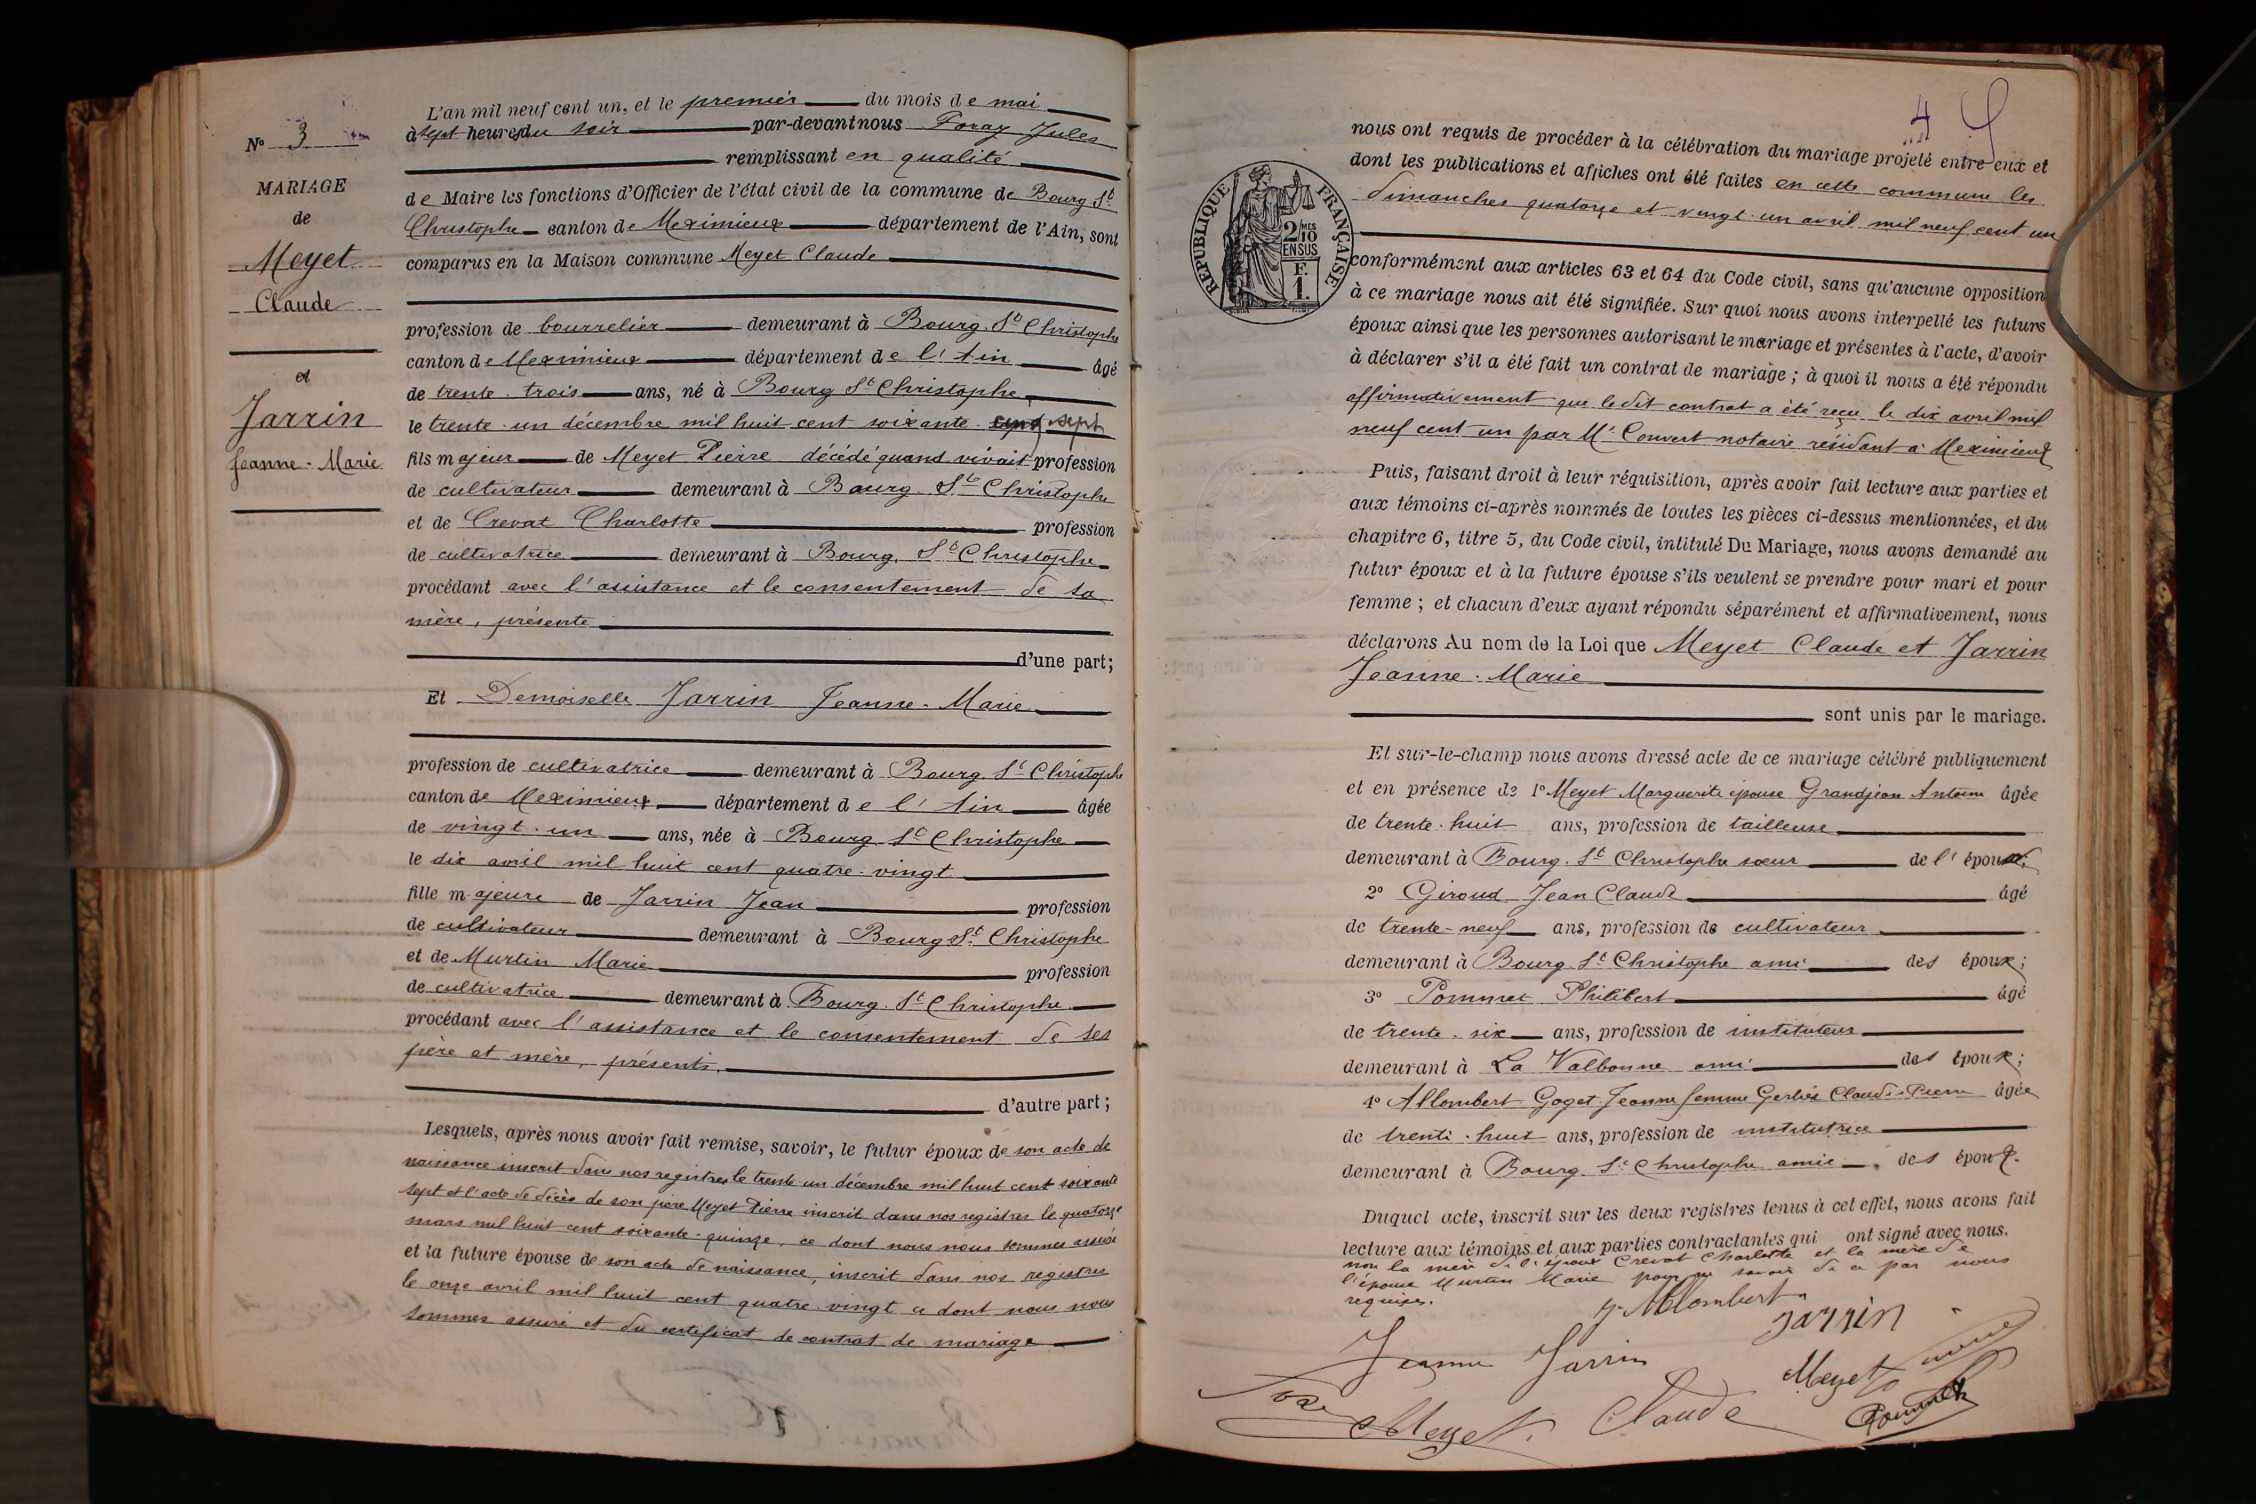 N° 3
MARIAGE
de
Meyet
Claude
et
Jarrin
Jeanne-Marie
L'an mil neuf cent un, et le premier du mois de mai
à sept heures du soir par-devant nous Foray Jules
remplissant en qualité
de Maire les fonctions d'Officier de l'état civil de la commune de Bourg St
Christophe canton de Meximieux département de l'Ain, sont
comparus en la Maison commune Meyet Claude
profession de bourrelier demeurant à Bourg St Christophe
canton de Meximieux département de l'Ain âgé
de trente-trois ans, né à Bourg St Christophe
le trente-un décembre mil huit cent soixante-cinq sept
fils majeur de Meyet Pierre décédé quand vivait profession
de cultivateur demeurant à Bourg St Christophe
et de Crevat Charlotte profession
de cultivatrice demeurant à Bourg St Christophe
procédant avec l'assistance et le consentement de sa
mère, présente
d'une part;
Et Demoiselle Jarrin Jeanne-Marie
profession de cultivatrice demeurant à Bourg St Christophe
canton de Meximieux département de l'Ain âgée
de vingt-un ans, née à Bourg St Christophe
le dix avril mil huit cent quatre-vingt
fille majeure de Jarrin Jean profession
de cultivateur demeurant à Bourg St Christophe
et de Murtin Marie profession
de cultivatrice demeurant à Bourg St Christophe
procédant avec l'assistance et le consentement de ses
père et mère, présents,
d'autre part;
Lesquels, après nous avoir fait remise, savoir, le futur époux de son acte de
naissance inscrit dans nos registres le trente-un décembre mil huit cent soixante
sept et l'acte de décès de son père Meyet Pierre inscrit dans nos registres le quatorze
mars mil huit cent soixante-quinze, ce dont nous nous sommes assuré
et la future épouse de son acte de naissance, inscrit dans nos registres
le onze avril mil huit cent quatre-vingt ce dont nous nous
sommes assuré et du certificat de contrat de mariage
4
RÉPUBLIQUE FRANÇAISE
2/10 MES
EN SUS
F.
1.
nous ont requis de procéder à la célébration du mariage projeté entre eux et
dont les publications et affiches ont été faites en cette commune les
dimanches quatorze et vingt-un avril mil neuf cent un
conformément aux articles 63 et 64 du Code civil, sans qu'aucune opposition
à ce mariage nous ait été signifiée. Sur quoi nous avons interpellé les futurs
époux ainsi que les personnes autorisant le mariage et présentes à l'acte, d'avoir
à déclarer s'il a été fait un contrat de mariage; à quoi il nous a été répondu
affirmativement que le dit contrat a été reçu le dix avril mil
neuf cent un par Me Convert notaire résidant à Meximieux
Puis, faisant droit à leur réquisition, après avoir fait lecture aux parties et
aux témoins ci-après nommés de toutes les pièces ci-dessus mentionnées, et du
chapitre 6, titre 5, du Code civil, intitulé Du Mariage, nous avons demandé au
futur époux et à la future épouse s'ils veulent se prendre pour mari et pour
femme; et chacun d'eux ayant répondu séparément et affirmativement, nous
déclarons Au nom de la Loi que Meyet Claude et Jarrin
Jeanne-Marie
sont unis par le mariage.
Et sur-le-champ nous avons dressé acte de ce mariage célébré publiquement
et en présence de 1° Meyet Marguerite épouse Grandjean Antoine âgée
de trente-huit ans, profession de tailleuse
demeurant à Bourg St Christophe sœur de l'époux;
2° Giroud Jean Claude âgé
de trente-neuf ans, profession de cultivateur
demeurant à Bourg St Christophe ami des époux;
3° Pommet Philibert âgé
de trente-six ans, profession de instituteur
demeurant à La Valbonne ami des époux;
4° Allombert Goget Jeanne femme Gerbis Claude-Pierre âgée
de trente-huit ans, profession de institutrice
demeurant à Bourg St Christophe amie des époux.
Duquel acte, inscrit sur les deux registres tenus à cet effet, nous avons fait
lecture aux témoins et aux parties contractantes qui ont signé avec nous.
non la mère de l'époux Crevat Charlotte et la mère de
l'épouse Murtin Marie pour ne savoir de ce par nous
requises.
J. Allombert
Jarrin
Jeanne Jarrin
Meyet
Foray
Meyet Claude
Pommet